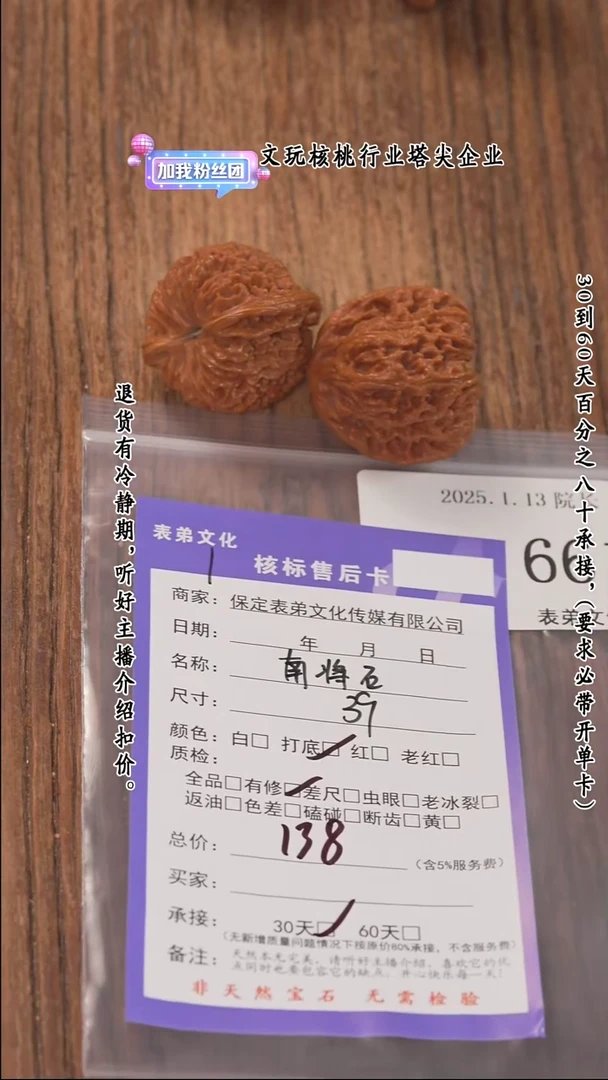 文玩核桃行业塔尖企业
加我粉丝团
30到60天百分之八十承接，（要求必带开单卡）
退货有冷静期，听好主播介绍扣价。
2025.1.13 院长
66
表弟文
表弟文化
1
核标售后卡
商家：保定表弟文化传媒有限公司
日期： 年 月 日
名称： 南将石
尺寸： 39
颜色：白□ 打底□ 红□ 老红□
质检：
全品□有修□差尺□虫眼□老冰裂□
返油□色差□磕碰□断齿□黄□
总价： 138 （含5%服务费）
买家：
承接： 30天□ 60天□
（无新增质量问题情况下按原价80%承接，不含服务费）
备注：天然本无完美，请听好主播介绍，喜欢它的优
点同时也要包容它的缺点，开心快乐每一天！
非天然宝石 无需检验